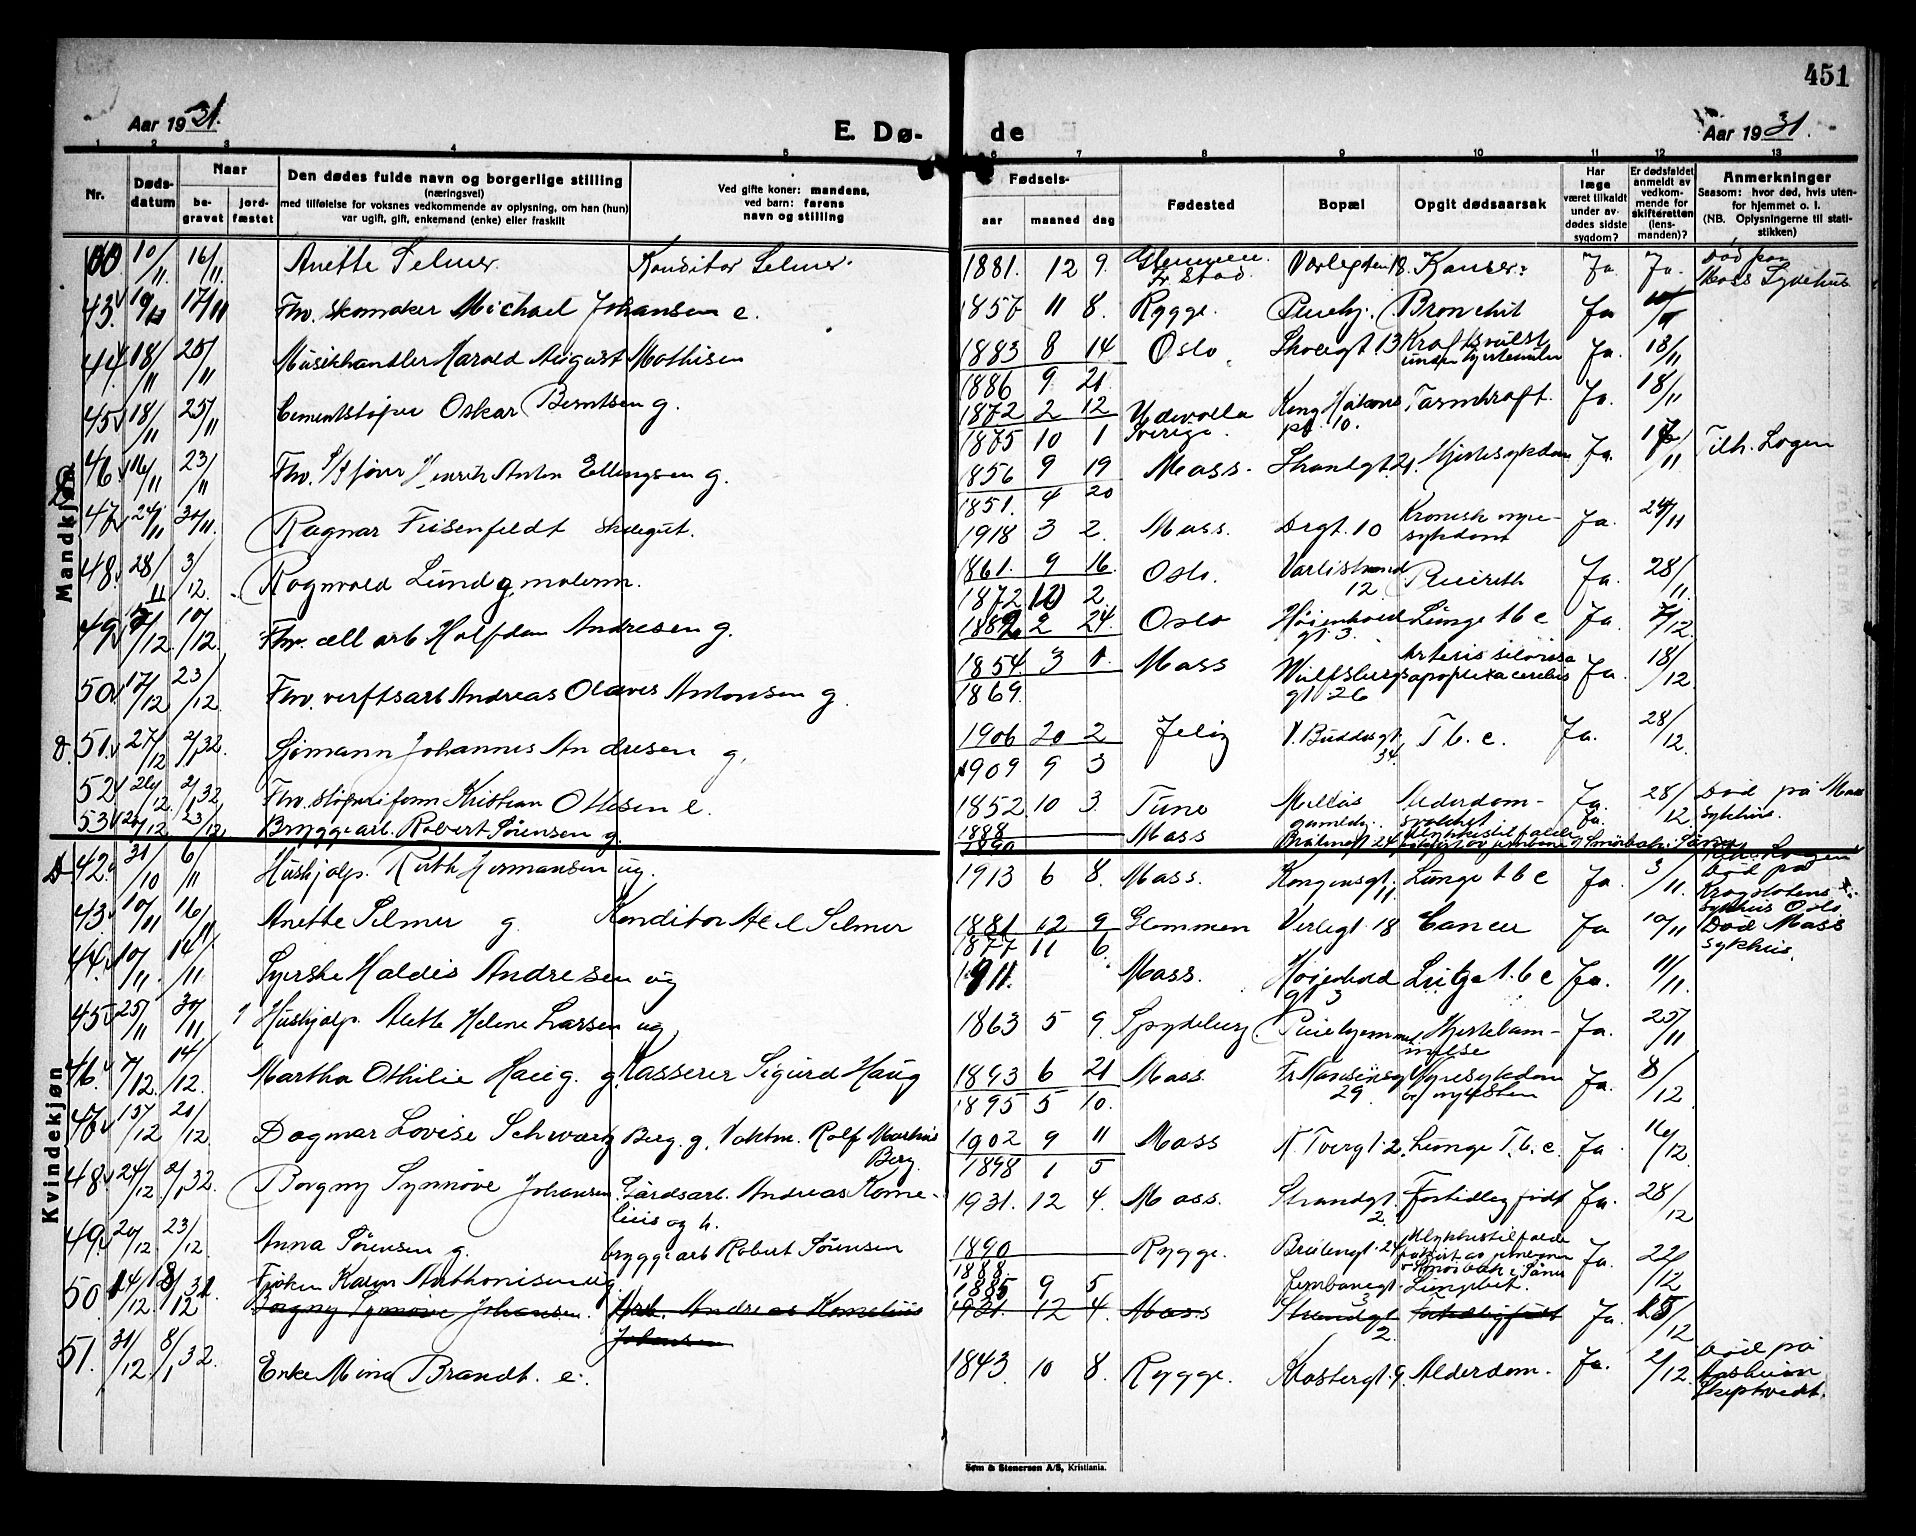 451
Aar 1931.
E. Dø-
de
Aar 1931.
1 2 3 4 5 6 7 8 9 10 11 12 13
Nr.
Døds-
datum
Naar
be-
gravet
jord-
fæstet
Den dødes fulde navn og borgerlige stilling
(næringsvei)
med tilføielse for voksnes vedkommende av oplysning, om han (hun)
var ugift, gift, enkemand (enke) eller fraskilt
Ved gifte koner: mandens,
ved barn: farens
navn og stilling
Fødsels-
aar
maaned
dag
Fødested
Bopæl
Opgit dødsaarsak
Har
læge
været tilkaldt
under av-
dødes sidste
sygdom?
Er dødsfaldet
anmeldt av
vedkom-
mende for
skifteretten
(lens-
manden)?
Anmerkninger
Saasom: hvor død, hvis uten-
for hjemmet o. l.
(NB. Oplysningerne til stati-
stikken)
Mandkjøn
10/11 16/11 Anette Selmer. Konditor Selmer. 1881. 12 9. Glemmen Fr. Stad. 18. Kanser. Ja. Ja. Død paa
Moss Sykehus
43. 17/11 Fhv. skomaker Michael Johansen e. 1857 11 8. Rygge. Pleiehj. Bronchit Ja
44. 18/11 25/11 Musikhandler Harald August Mathisen 1883 8 14 Oslo Skolegt. 13 Kræftsvulst Ja. 18/11
1886 9 21.
45. 18/11 25/11 Cementstøper Oskar Berntsen g. 1872 2 12 Udevalla Kong Haakons Tarmkræft. Ja. 18/11
1875 10 1 Sverige. pl. 10.
46. 16/11 23/11 Fhv. Henrik Anton Ellingsen g. 1856 9 19 Moss. 21. Hjertesykdom Ja. Tilh. Logen
1851. 4 20
47. 24/11 30/11. Ragnar Friesenfeldt skolegut. 1918 3 2. Moss. Drgt. 10 Kronisk nyre-
sykdom Ja. 24/11
48. 28/11 3/12. Ragnvald Lund g, malerm. 1861. 9 16. Oslo. Varlistrand
12. Pleurith Ja. 28/11.
1872 10 2.
49. 10/12. Fhv. cell arb Halfdan Andresen g. 2 24. Oslo Høienhold
gt. 3. Lunge tbc Ja 7/12.
50. 17/12 23/12. Fhv. verftsarb Andreas Olaves Antonsen g. 1854. 3 1. Moss Wulfsbergs
gt 26 apoplexia cerebris Ja. 18/12
1869.
51. 27/12 2/1 32. Sjømann Johannes Andresen g. 1906 20 2 Jeløy V. Buddesgt.
34. T b. c. Ja. 28/12.
1909 9 3
52 2/1 32 Fhv. støperiform Kristian Ottesen e. 1852 10 3. Tune Melløs
gamlehj. Alderdom-
svakhet Ja. 28/12. Død på Moss
sykhus.
53. 23/12 Bryggearb. Robert Sørensen g. 1888
1890 Moss 24 Ja.
Kvindekjøn
42. 31/10 6/11 Hushjelp. Ruth Hermansen ug. 1913 6 8. Moss. Kongensgt. 11. Lunge tbc Ja 3/11. Tilh. Logen
Død på
sykhus Oslo
43. 10/11 16/11 Anette Selmer g Konditor Selmer 1881 12 9 Glemmen Verlegt 18 Cancer Ja 10/11 Død Moss
sykhus.
1877 11 6.
44. 10/11. 14/11 Syerske Haldis Andresen ug 1911. Moss. Høienhold
gt 3 Lunge t. b c Ja. 11/11.
45 25/11 30/11 Hushjelp. Alette Helene Larsen ug 1863 5 9. Spydeberg Pleiehjemmet. Hjertelam-
melse Ja. 25/11
46. 7/12. 14/12. Martha Othilie Haug. g. Kasserer Sigurd Haug 1893 6 21 Moss. Fr Nansensg
29. Nyresykdom
og nyresten Ja. 8/12.
1895 5 10.
47. 15/12 21/12. Dagmar Lovise Schwartz Berg. g. Vaktm. Rolf Marhus
Berg. 1902 9 11 Moss N. Torvgt 2. Lunge T. b. c. Ja. 16/12.
1898 1 5
48. 24/12 2/1 32. Borgny Synnøve Johansen. Gårdsarb. Andreas Korne-
lius og h. 1931. 12 4. Moss. Strandgt.
2. Fortidlig født Ja. 28/12
49. 20/12. 23/12. Anna Sørensen g. bryggearb Robert Sørensen 1890
1888. Rygge. 24 Ja. 22/12
50 14/12 18/12 31. Frøken Karen Anthonisen ug 1885 9 5 Jernbanegt.
Borgny Synnøve Johansen. Arb. Andreas Kornelius
Johansen 1931. 12 4. Moss Strandgt
2. fortidlig født Ja. 15/12
51. 31/12. 8/1 32. Enke Mina Brandt. e. 1843. 10 8. Rygge. Klostergt. 9. Alderdom. Ja. 2/12. Død på
Skiptvedt.
Søm & Stenersen A/S, Kristiania.